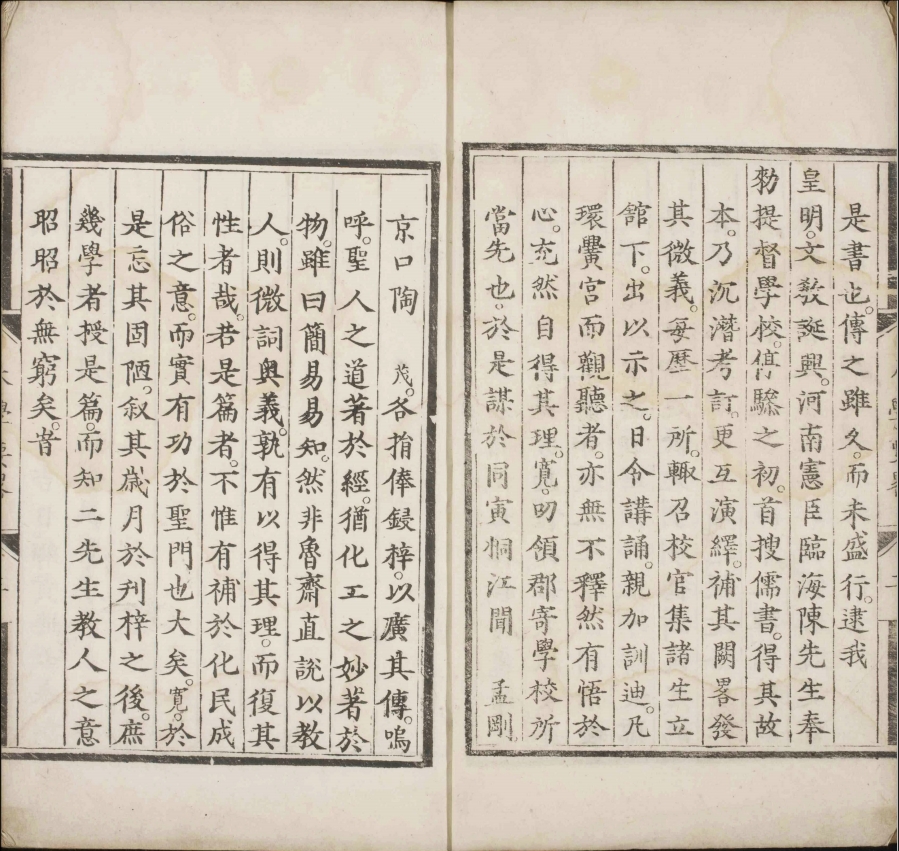 是書也。傳之雖久。而未盛行。逮我
皇明。文敎誕興。河南憲臣臨海陳先生奉
勑提督學校。偆驂之初。首搜儒書。得其故
本。乃沉潛考訂。更互演繹。補其闕畧發
其微義。每歷一所。輙召校官集諸生立
館下。出以示之。日令講誦。親加訓迪。凡
環黌宮而觀聽者。亦無不釋然有悟於
心。充然自得其理。寛。叨領郡寄學校所
當先也。於是謀於同寅桐江聞 孟剛
京口陶 茂。各捐俸鋟梓。以廣其傳。嗚
呼。聖人之道著於經。猶化工之妙著於
物。雖曰簡易易知。然非魯齋直說以教
人。則微詞奧義。孰有以得其理。而復其
性者哉。若是篇者。不惟有補於化民成
俗之意。而實有功於聖門也大矣。寛。於
是忘其固陋。叙其歲月於刋梓之後。庶
幾學者授是篇。而知二先生教人之意
昭昭於無窮矣。旹